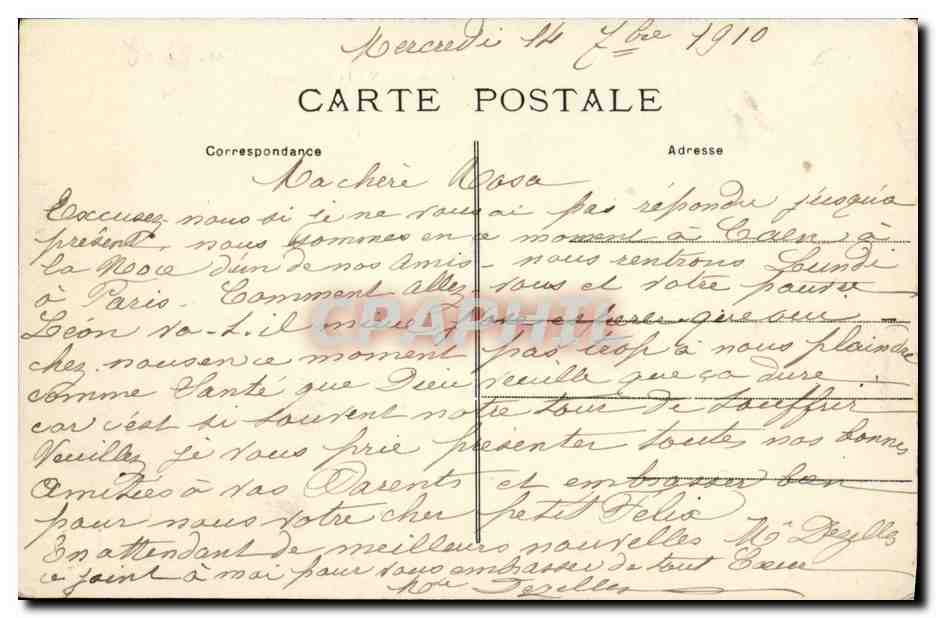 Mercredi 14 7bre 1910
CARTE POSTALE
Correspondance
Adresse
Ma chère Rosa
Excusez nous si je ne vous ai pas répondu jusqu'a
présent, nous sommes en ce moment à Caen à
la Noce d'un de nos Amis - nous rentrons Lundi
à Paris - Comment allez vous et votre pauvre
Léon va-t-il mieux que oui
CPAPHIL
chez nous en ce moment pas trop à nous plaindre
comme Santé que Dieu veuille que ça dure
car c'est si souvent notre tour de souffrir
Veuillez je vous prie présenter toutes nos bonnes
Amitiés à vos Parents et embrasser bien
pour nous votre cher petit Felix
En attendant de meilleurs nouvelles Mr Dezelles
ce joint à moi pour vous embrasser de tout Cœur
Mme Dezelles